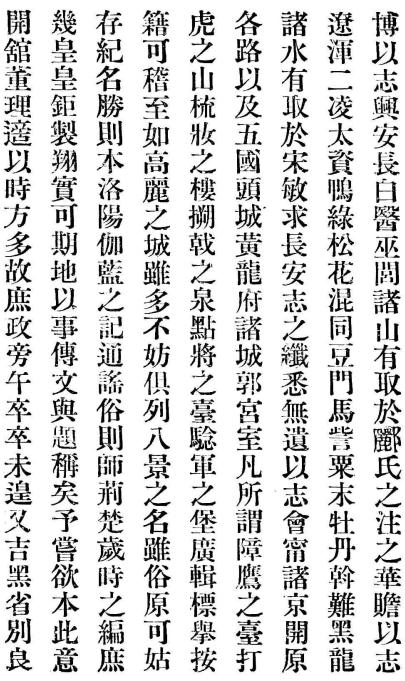 博以志興安長白醫巫閭諸山有取於酈氏之注之華贍以志
遼渾二凌太資鴨綠松花混同豆門馬訾粟末牡丹斡難黑龍
諸水有取於宋敏求長安志之纖悉無遺以志會甯諸京開原
各路以及五國頭城黃龍府諸城郭宮室凡所謂障鷹之臺打
虎之山梳妝之樓搠戟之泉點將之臺駐軍之堡廣輯標舉按
籍可稽至如高麗之城雖多不妨俱列八景之名雖俗原可姑
存紀名勝則本洛陽伽藍之記通謠俗則師荊楚歲時之編庶
幾皇皇鉅製翔實可期地以事傳文與題稱矣予嘗欲本此意
開舘董理適以時方多故庶政旁午卒卒未遑又吉黑省別良